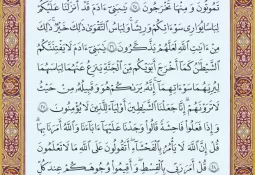 تَمُوتُونَ وَمِنْهَا تُخْرَجُونَ ۝ يَٰبَنِىٓ ءَادَمَ قَدْ أَنزَلْنَا عَلَيْكُمْ
لِبَاسًا يُوَٰرِى سَوْءَٰتِكُمْ وَرِيشًا وَلِبَاسُ ٱلتَّقْوَىٰ ذَٰلِكَ خَيْرٌ ذَٰلِكَ
مِنْ ءَايَٰتِ ٱللَّهِ لَعَلَّهُمْ يَذَّكَّرُونَ ۝ يَٰبَنِىٓ ءَادَمَ لَا يَفْتِنَنَّكُمُ
ٱلشَّيْطَٰنُ كَمَآ أَخْرَجَ أَبَوَيْكُم مِّنَ ٱلْجَنَّةِ يَنزِعُ عَنْهُمَا لِبَاسَهُمَا
لِيُرِيَهُمَا سَوْءَٰتِهِمَآ إِنَّهُۥ يَرَىٰكُمْ هُوَ وَقَبِيلُهُۥ مِنْ حَيْثُ
لَا تَرَوْنَهُمْ إِنَّا جَعَلْنَا ٱلشَّيَٰطِينَ أَوْلِيَآءَ لِلَّذِينَ لَا يُؤْمِنُونَ ۝
وَإِذَا فَعَلُوا۟ فَٰحِشَةً قَالُوا۟ وَجَدْنَا عَلَيْهَآ ءَابَآءَنَا وَٱللَّهُ أَمَرَنَا بِهَا
قُلْ إِنَّ ٱللَّهَ لَا يَأْمُرُ بِٱلْفَحْشَآءِ أَتَقُولُونَ عَلَى ٱللَّهِ مَا لَا تَعْلَمُونَ
۝ قُلْ أَمَرَ رَبِّى بِٱلْقِسْطِ وَأَقِيمُوا۟ وُجُوهَكُمْ عِندَ كُلِّ